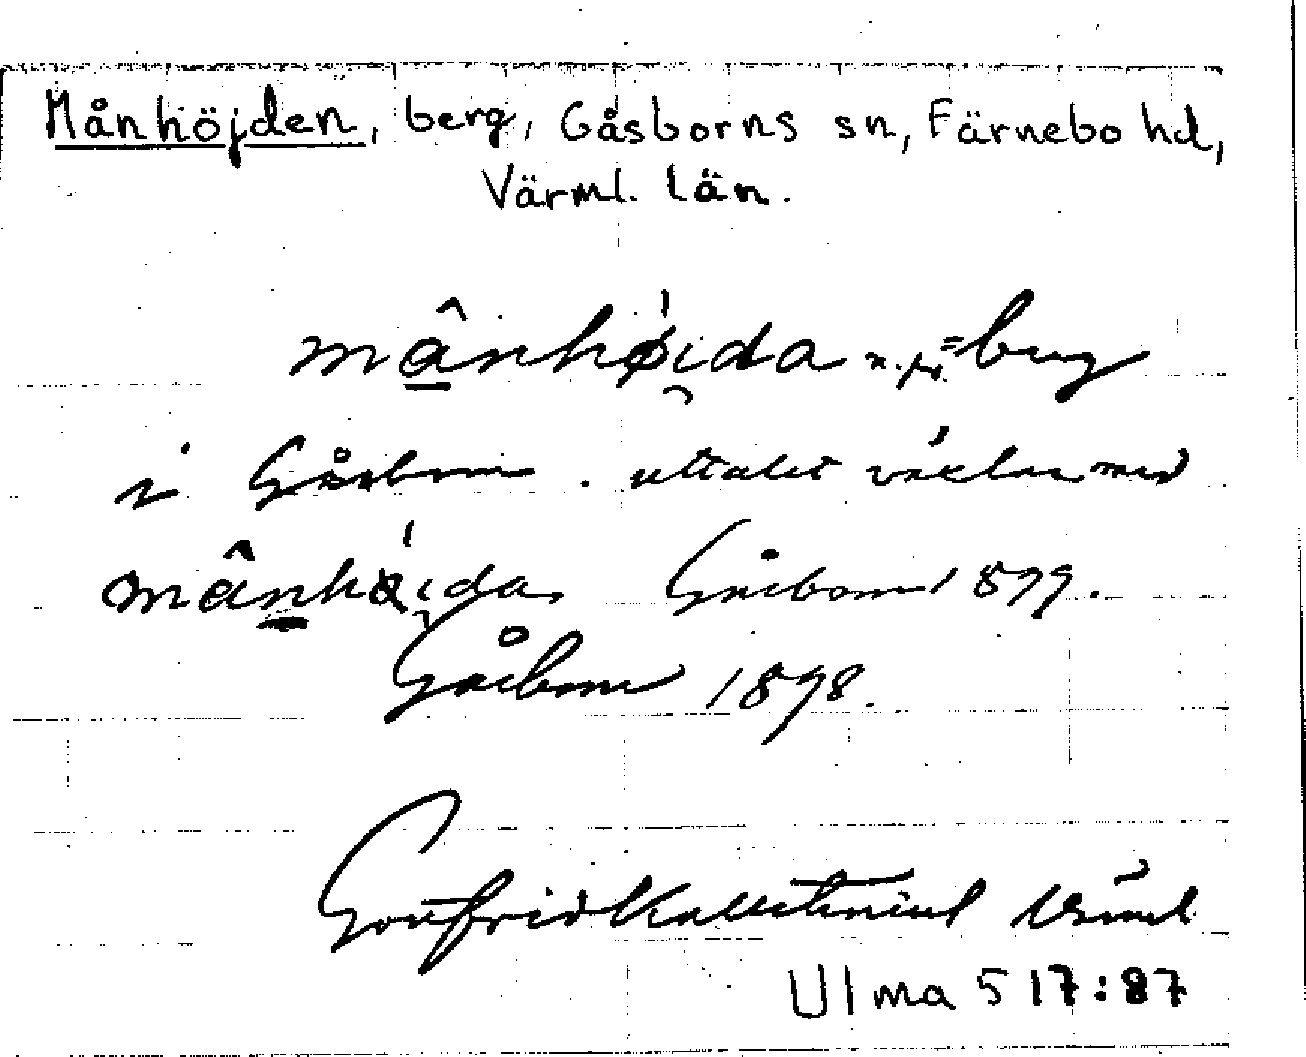 Månhöjden, berg, Gåsborns sn, Färnebo hd,
Värml. län.
mânhøida n. pr. = berg
i Gåsborn. uttalet växlar med
mânhøida Gåsborn 1899.
Gåsborn 1898.
Gottfrid Kallstenius Värml.
Ulma 517:87